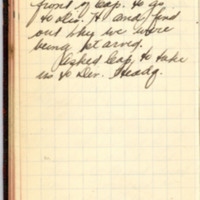 front of Cap. to go
to Div. H and find
out why we were
being
Asked Cap. to take
us to Div. Headq.